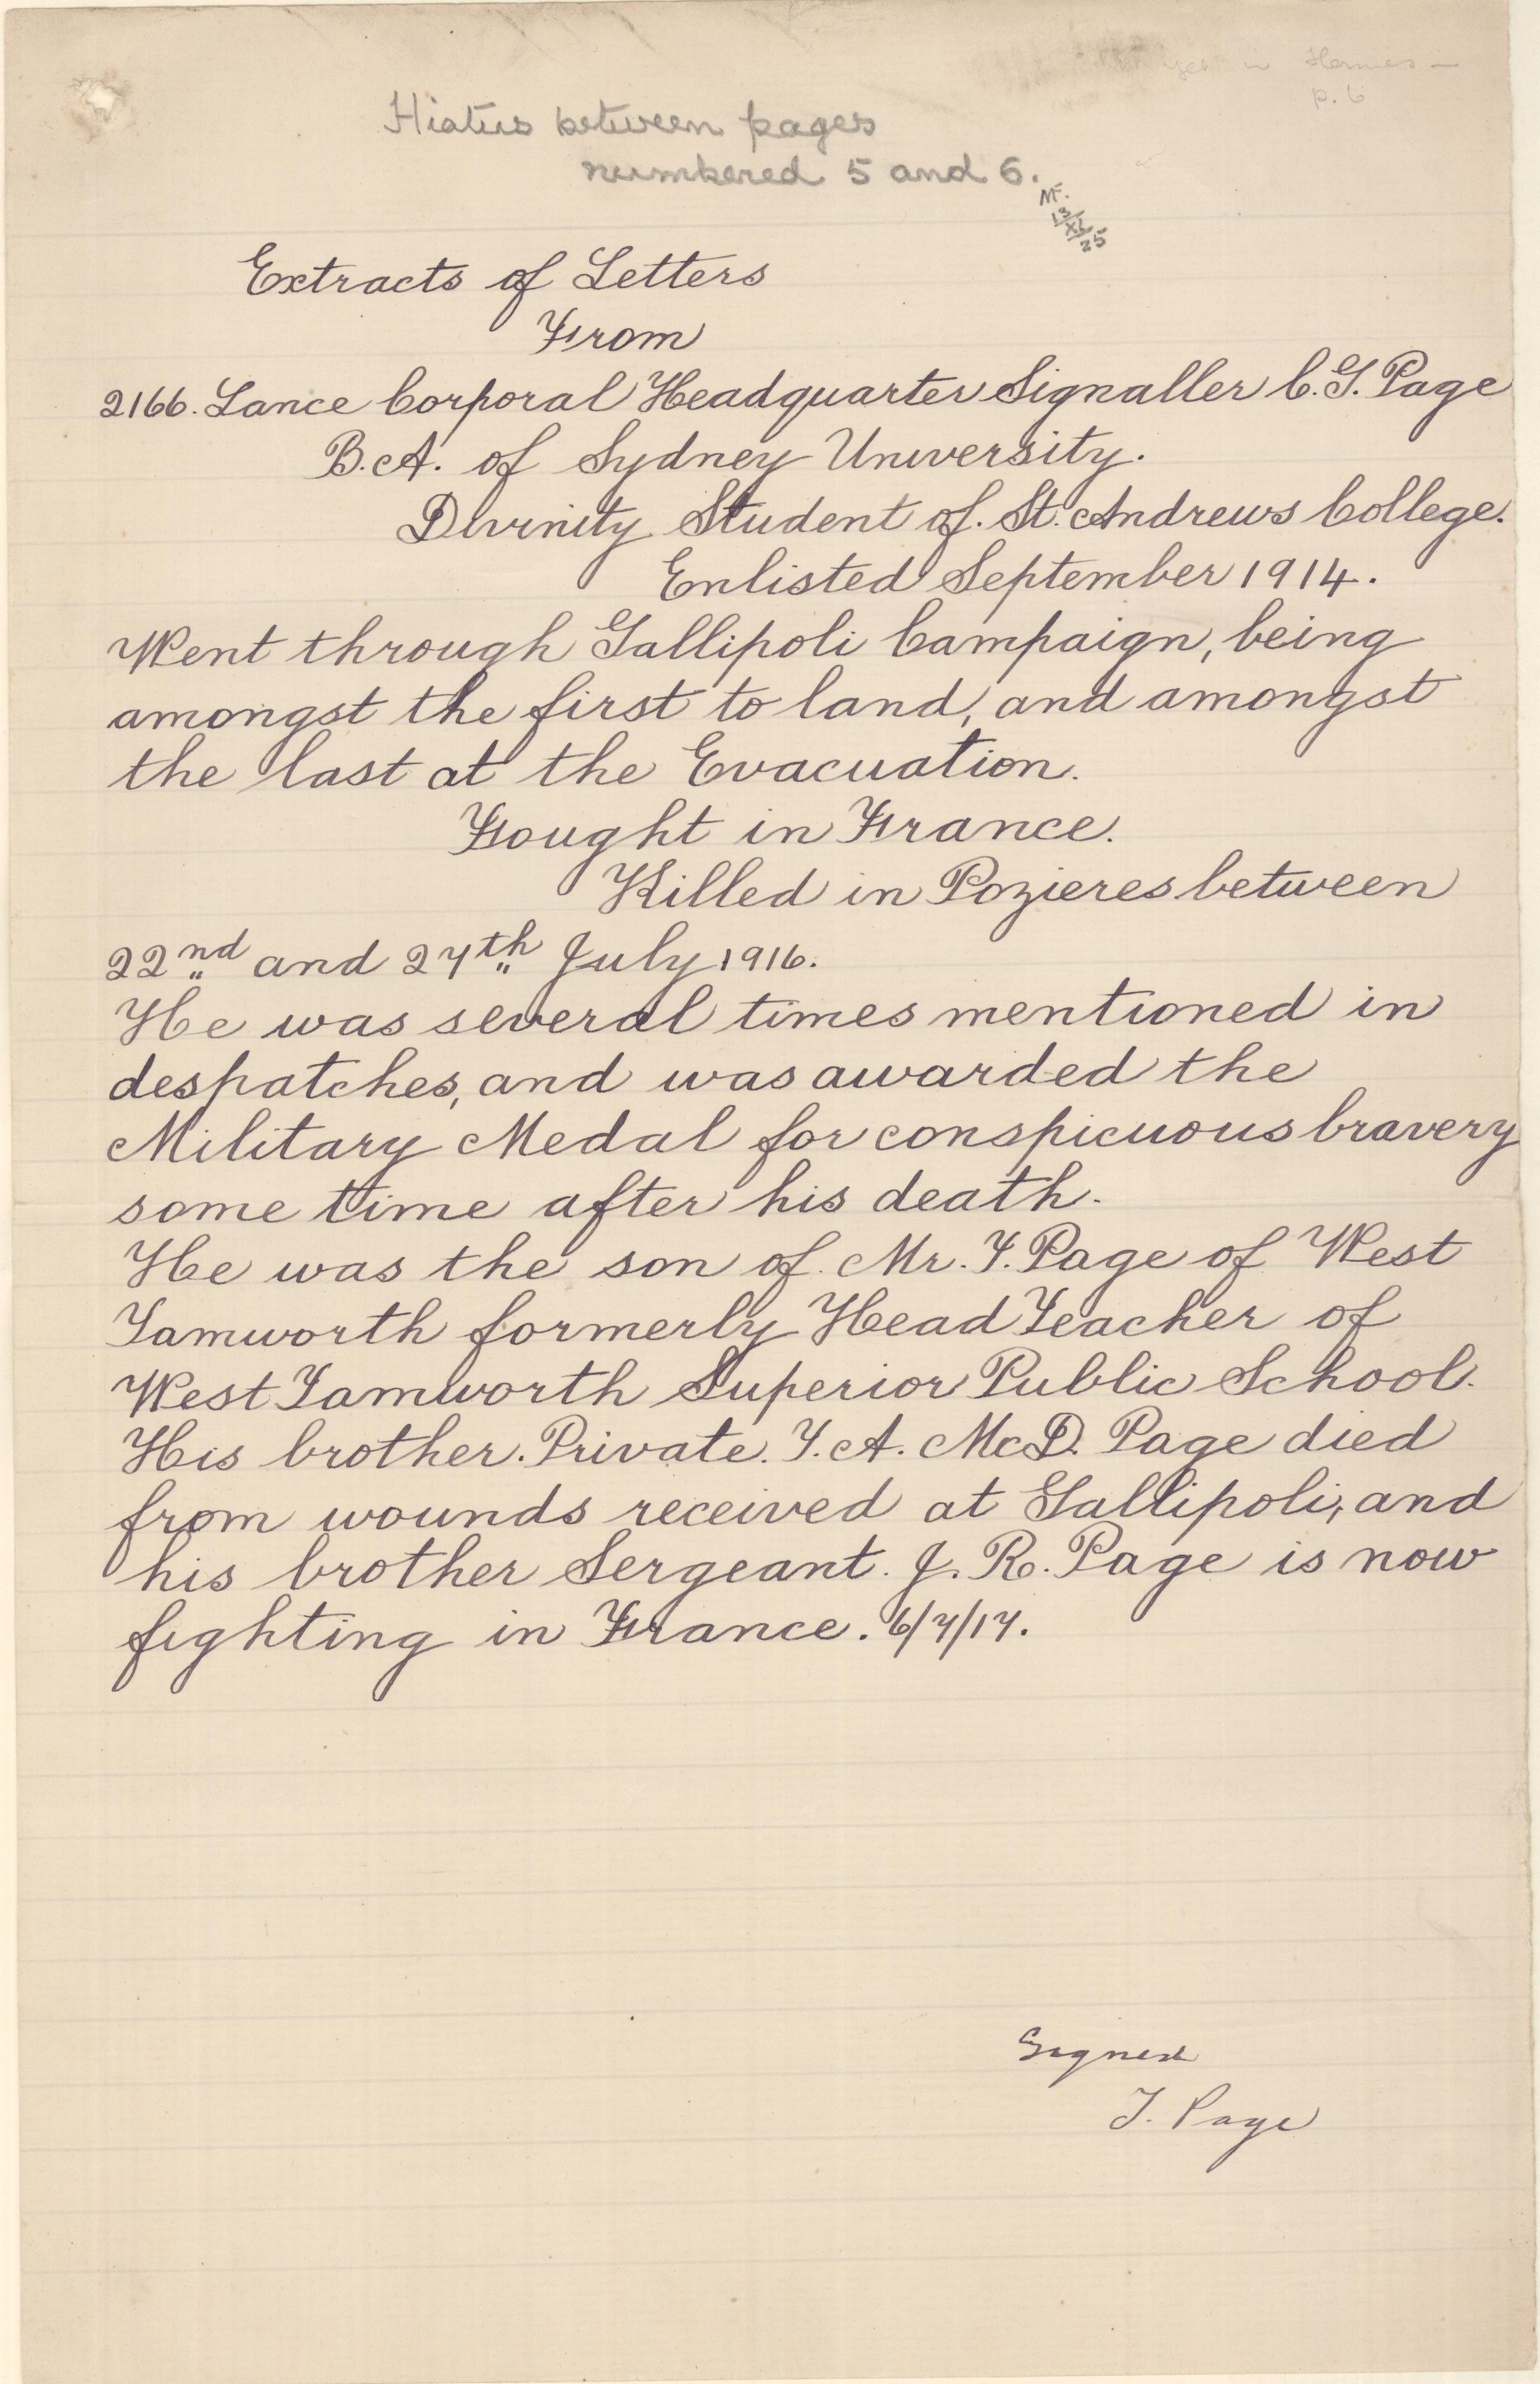 Hermes —
p. 6
Hiatus between pages
numbered 5 and 6.
M.
13
XI
25
Extracts of Letters
From
2166. Lance Corporal Headquarter Signaller C. G. Page
B.A. of Sydney University.
Divinity Student of. St. Andrews College.
Enlisted September 1914.
Went through Gallipoli Campaign, being
amongst the first to land, and amongst
the last at the Evacuation.
Fought in France.
Killed in Pozieres between
22nd and 27th July 1916.
He was several times mentioned in
despatches, and was awarded the
Military Medal for conspicuous bravery
some time after his death.
He was the son of. Mr. T. Page of West
Tamworth formerly Head Teacher of
West Tamworth Superior Public School.
His brother. Private. T. A. McD. Page died
from wounds received at Gallipoli, and
his brother Sergeant. J. R. Page is now
fighting in France. 6/7/17.
Signed
T. Page